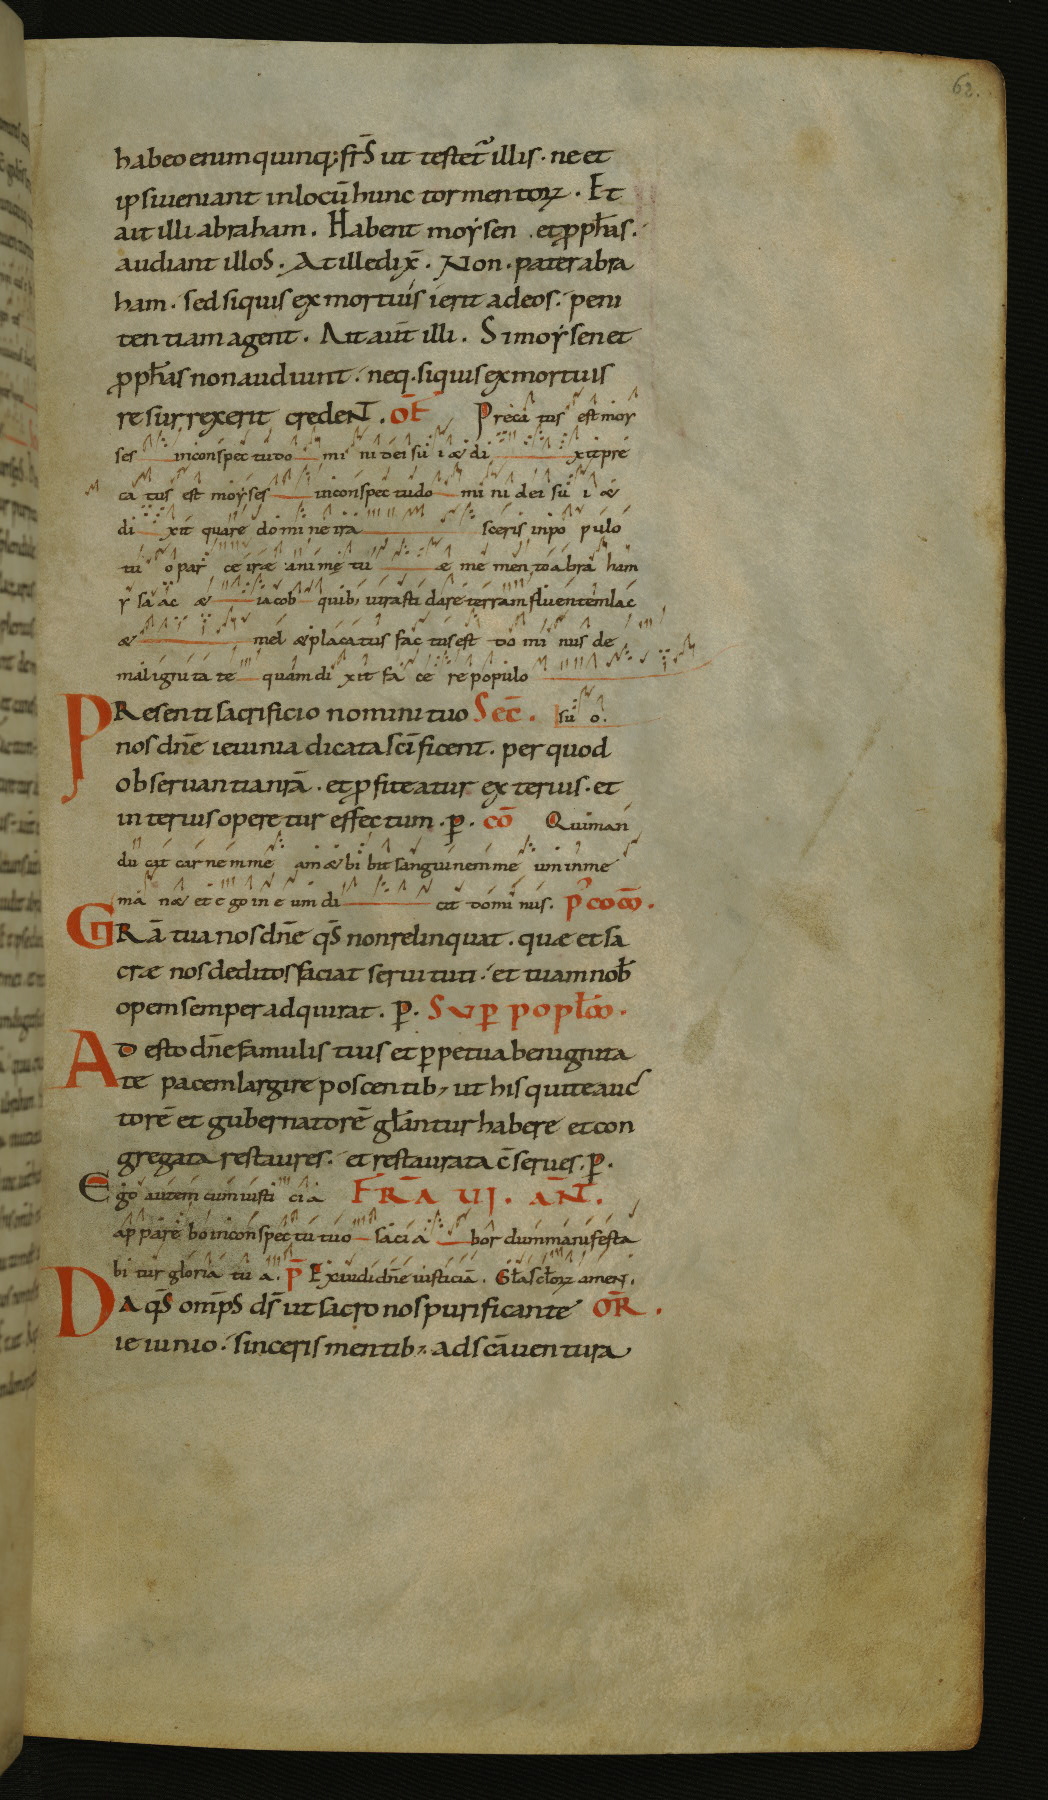 62.
habeo enim quinq; fr̄s ut testet᷑ illis. ne et
ipsi veniant in locū hunc tormentoꝝ. Et
ait illi abraham. Habent moẏsen et ꝓph̄as.
audiant illos. At ille dix̄. Non. pater abra
ham. sed si quis ex mortuis ierit ad eos. peni
tentiam agent. Ait aūt illi. Si moẏsen et
ꝓph̄as non audiunt. neq. si quis ex mortuis
resurrexerit credeNT. OF̄ Precatus est moy
ses in conspectu do mini dei sui æ di xit pre
catus est moyses in conspectu do mini dei sui æ
di xit quare domine ira sceris in populo
tuo par ce iræ anime tu æ memento abraham
ysaac æ iacob quib; iurasti dare terram fluentem lac
æ mel æ placatus factus est dominus de
malignitate quam dixit facere populo
PResenti sacrificio nomini tuo Sec̄. suo.
nos dn̄e ieiunia dicata sc̄ificent. per quod
observantia nr̄ā. et ꝓfiteatur exterius. et
interius operetur effectum. ꝑ. cō Qui man
ducat carnem meam æ bibit sanguinem meum in me
manæ et ego in eum dicit dominus. P̄ COM̄.
GRā tua nos dn̄e qs̄ non relinquat. quæ et sa
cræ nos deditos faciat servituti. et tuam nob̄
opem semper adquirat. ꝑ. SUꝑ popl̄m̄.
ADesto dn̄e famulis tuis et ꝑpetua benignita
te pacem largire poscentib; ut his qui te auc
torē et gubernatorē gl̄antur habere et con
gregata restaures. et restaurata c̄serves. ꝑ.
Ego autem cum iusticia FR̄A VI. AN̄.
apparebo in conspectu tuo saciabor dum manifesta
bitur gloria tua. P̄ Exaudi dn̄e iusticiā. Gl̄a scl̄oꝝ amen.
DA qs̄ omp̄s ds̄ ut sacro nos purificante OR̄.
ieiunio. sinceris mentib; ad sc̄a ventura